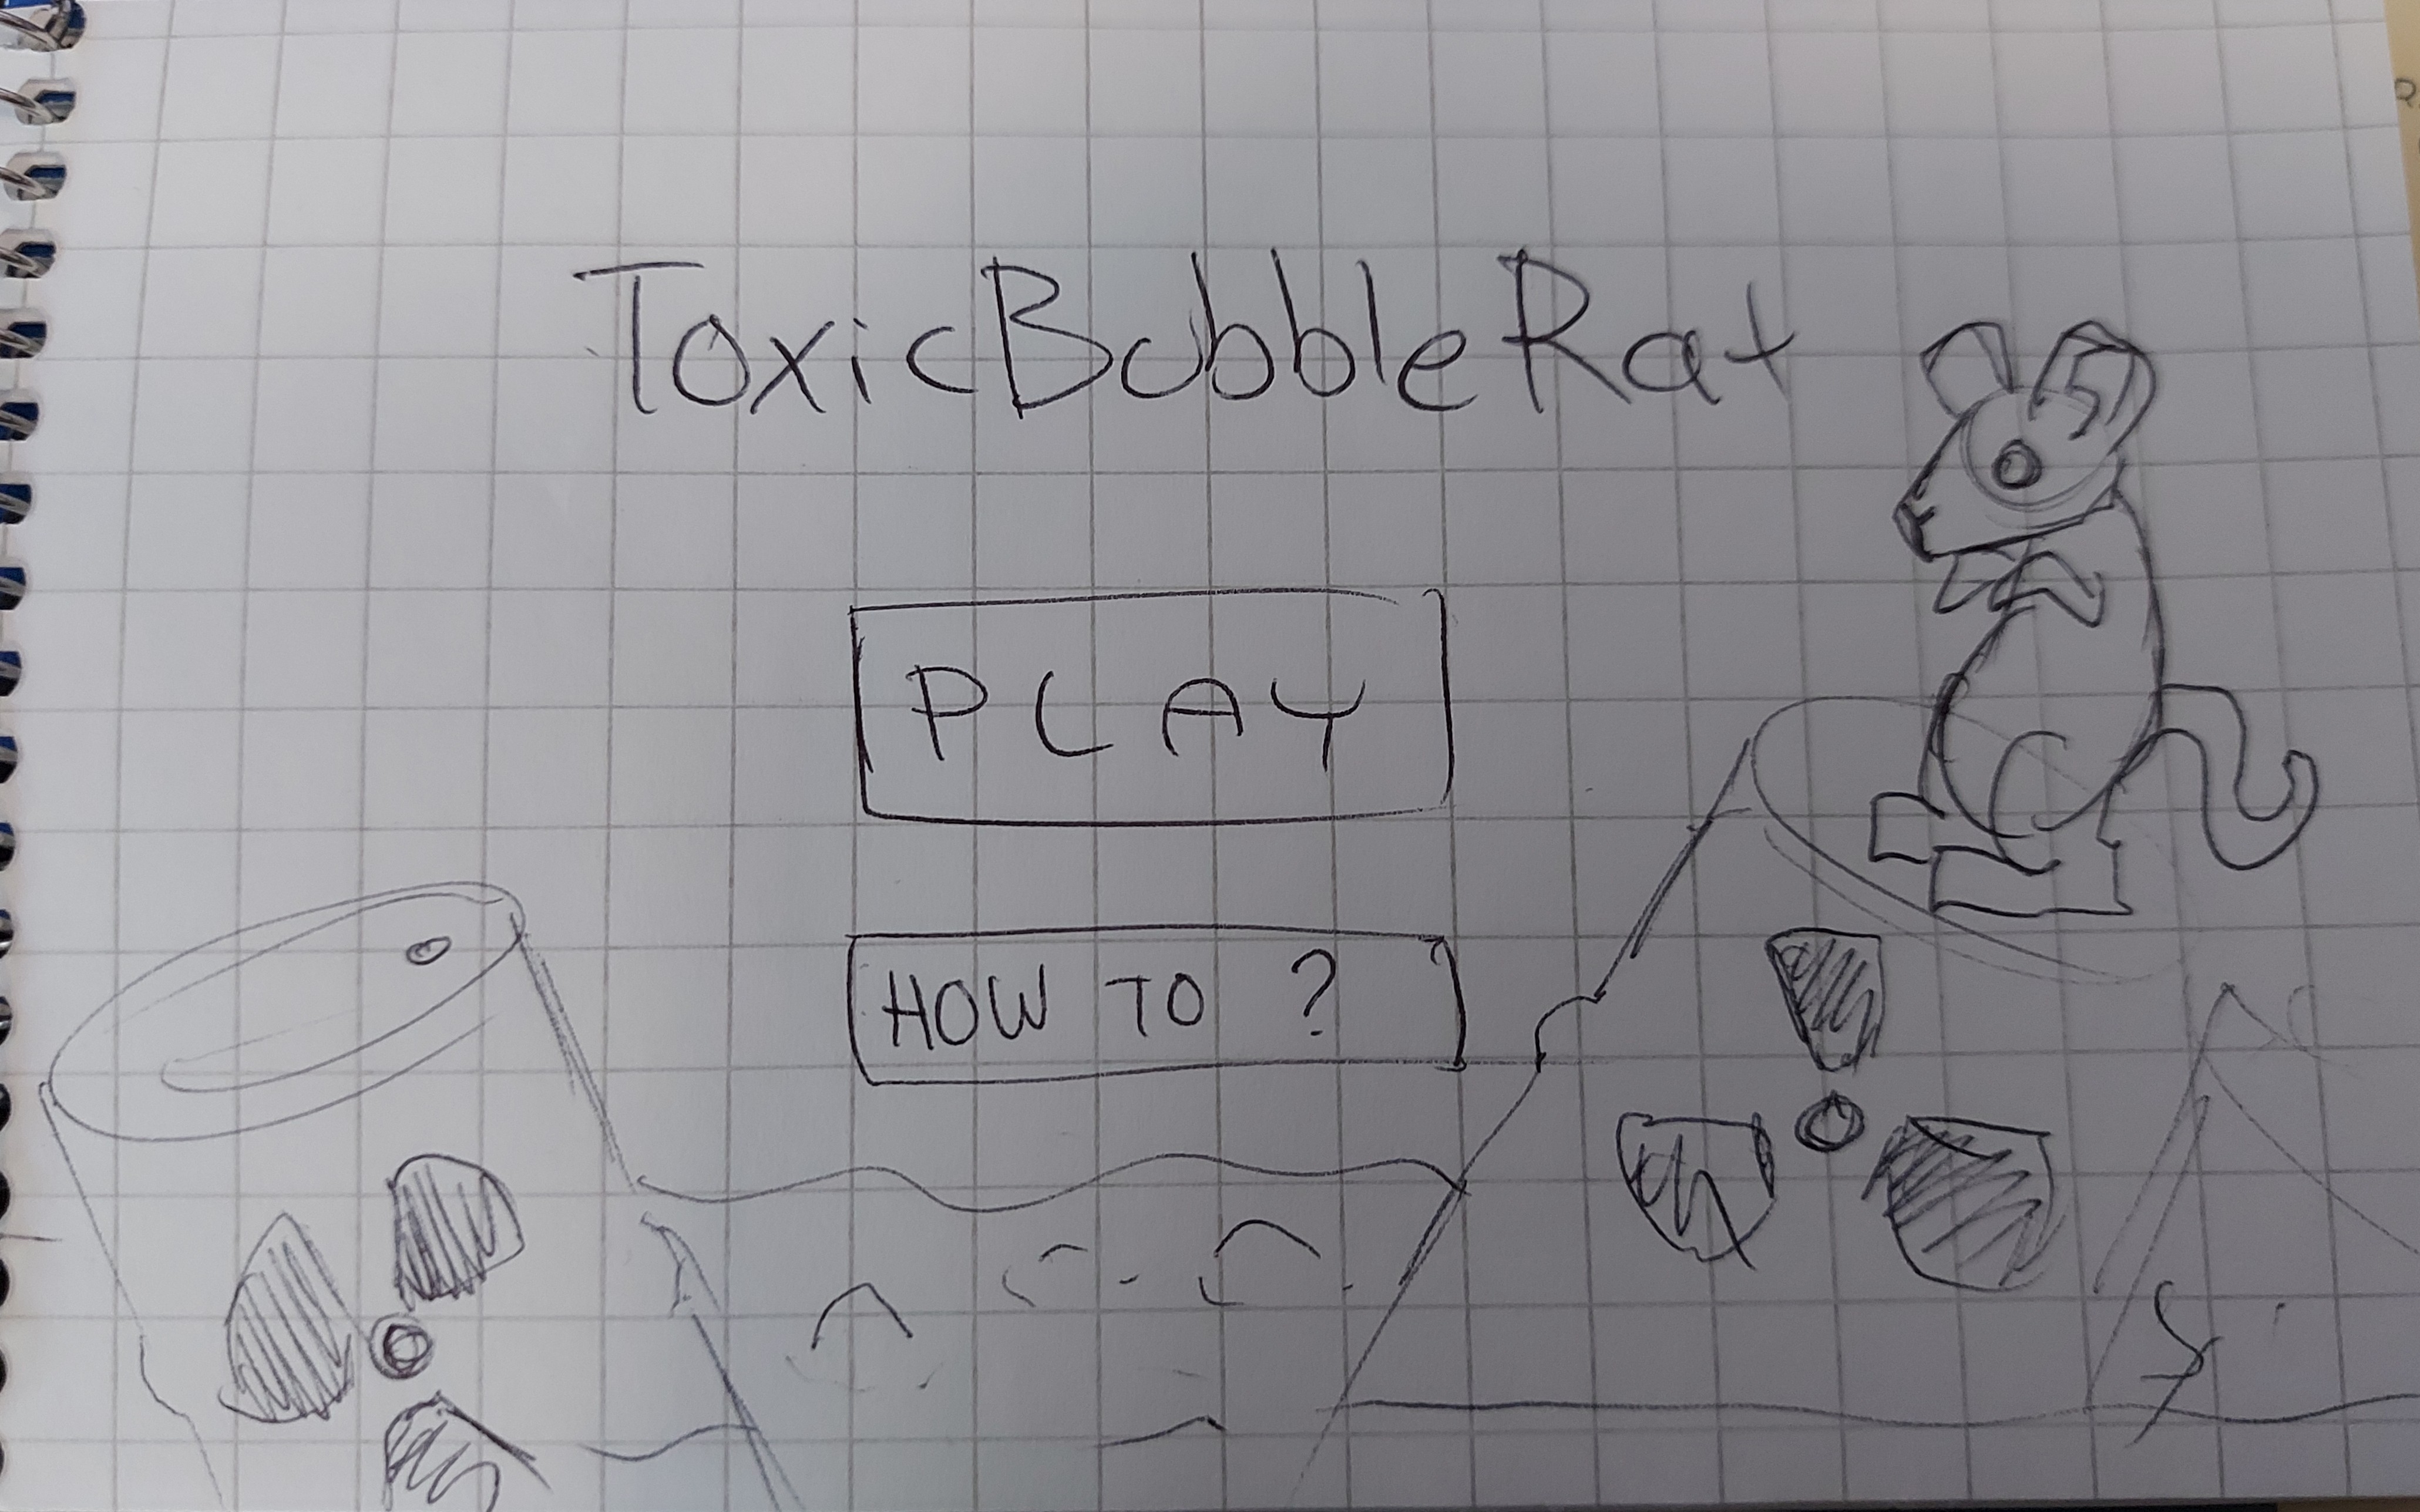 ToxicBubbleRat
PLAY
HOW TO ?